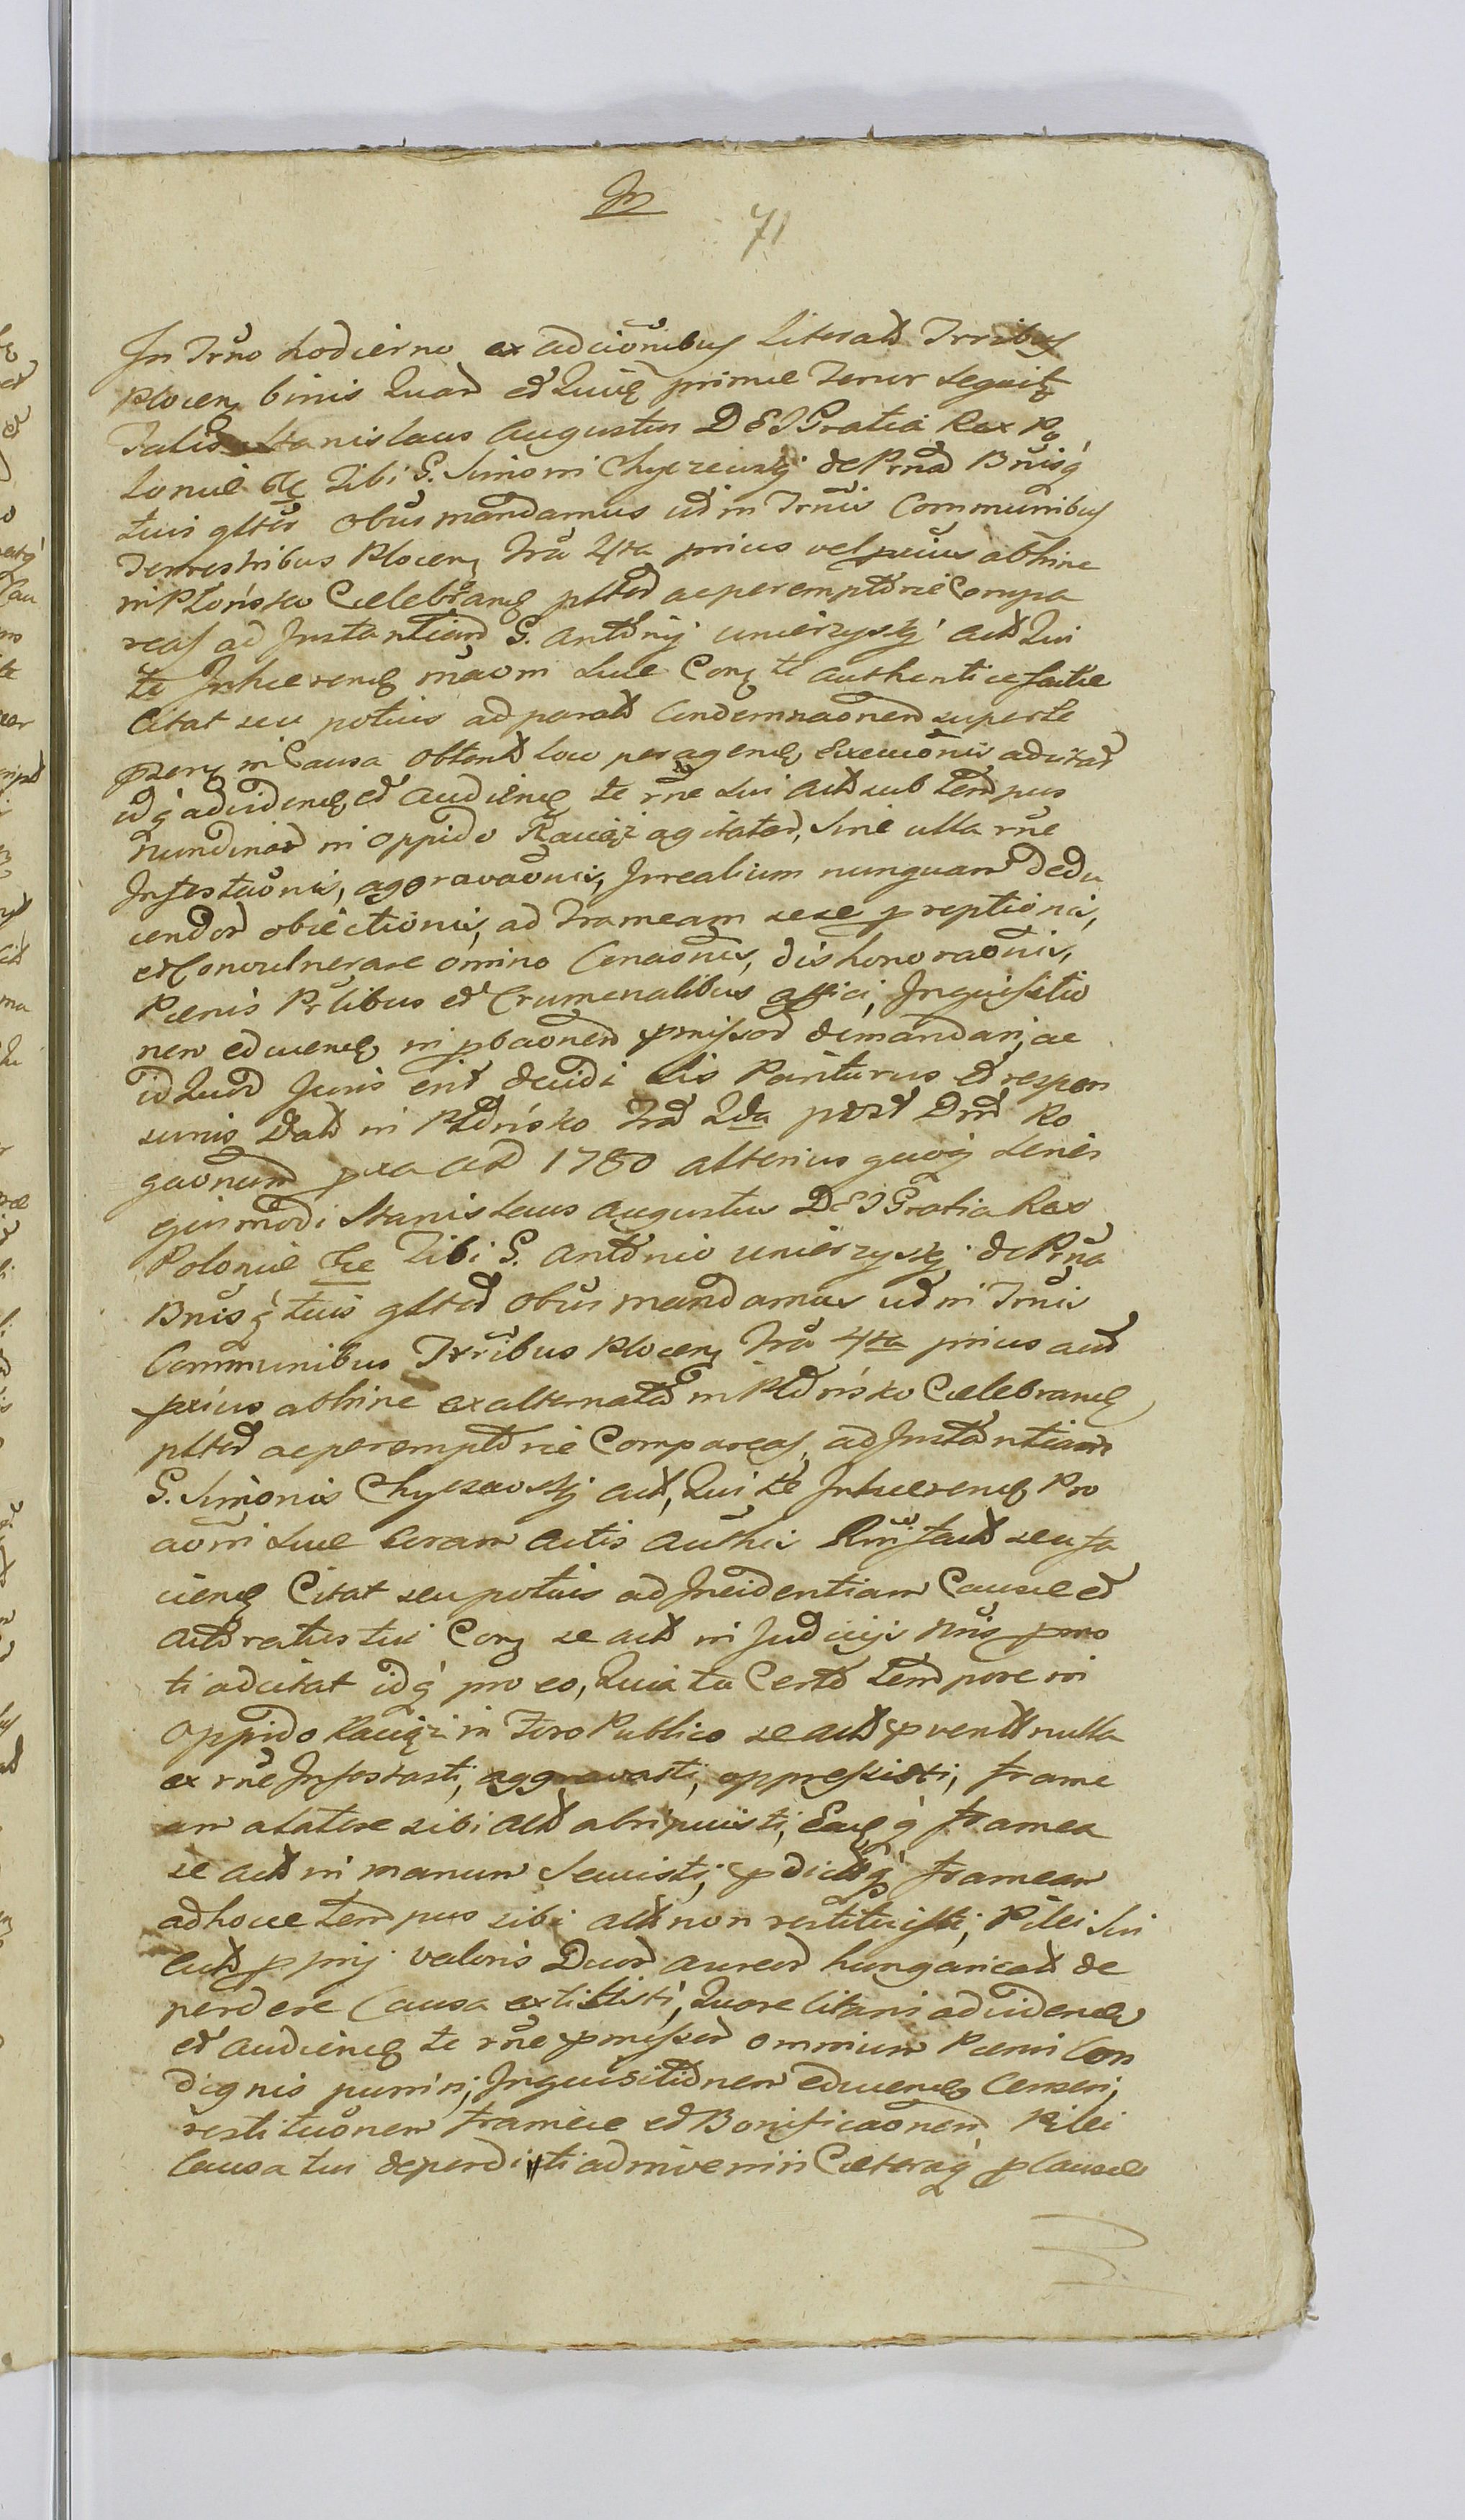 In
71
In Trno hodierno ex adcionibus Literat Trribus
Plocen binis Quar et Quie primae Tenor sequitr
Talis Stanislaus Augustus DEI Gratia Rex Po
loniae &c Tibi G. Simoni Chyczewskj de Prna Bnisq
tuis gltis obus mandamus ut in Trnis Communibus
Terrestribus Plocen Fra 4ta prius vel prius abhinc
in Płońsko Caelebran pltr ac peremptorie Compa
reas ad Instantiam G. Antonij Umierzyskj act Qui
te Inhaeren maom suae Con te authentice factae
Citat seu potius ad parat Condemnaonem super te
przen in Causa obtent loco peragen Execuonis adcitat
idq ad viden et audien te rne sui act sub tempus
Nundinar in oppido Raciąż agitator, sine ulla rne
Infestaonis, aggravaonis, Irrealium nunquam dedu
cendor obiectionis, ad Frameam sese preptionis,
et Convulnerare omnino Conaonis, dishonoraonis,
Paenis Prlibus et Crumenalibus affici, Inquisitio
nem educen in pbaonem pmissor demandari, ac
id Quod Juris erit decidi sis Pariturus et respon
surus Dat in Płońsko Fra 2da post Dnm Ro
gaonum pxa AD 1780 alterius quoq Series
ejusmodi Stanislaus Augustus DEI Gratia Rex
Poloniae &c Tibi G. Antonio Umierzyskj de Prna
Bnisq tuis gltr obus mandamus ut in Trnis
Communibus Trribus Plocen Fra 4ta prius aut
prius abhinc ex alternata in Płońsko Caelebran
pltr ac peremptorie Compareas, ad Instantiam
G. Simonis Chyczewskj act, Qui te Inhaeren Pro
aoni suae Coram Actis Authcis Rni fact seu fa
cien Citat seu potius ad Incidentiam Causae et
Actoratus tui Con se act in Judicijs Nris pmo
ti adcitat idq pro eo, Quia tu Certo tempore in
oppido Raciąż in Foro Publico se act pvent nulla
ex rne Infestasti, aggravasti, oppressisti, frame
am a latere sibi act abripuisti, Eaq framea
se act in manum Secuisti, pdictq frameam
adhucce tempus sibi act non restituisti, Pilei sui
act pprij valoris Duor aureor hungaricat de
perdere Causa extitisti, Quare Citaris ad viden
et audien te rne pmissor omnium Paenis Con
dignis puniri, Inquisitionem educen Censeri,
restituonem frameae et Bonificaonem Pilei
Causa tui deperditi adinveniri Caeteraq pCausae